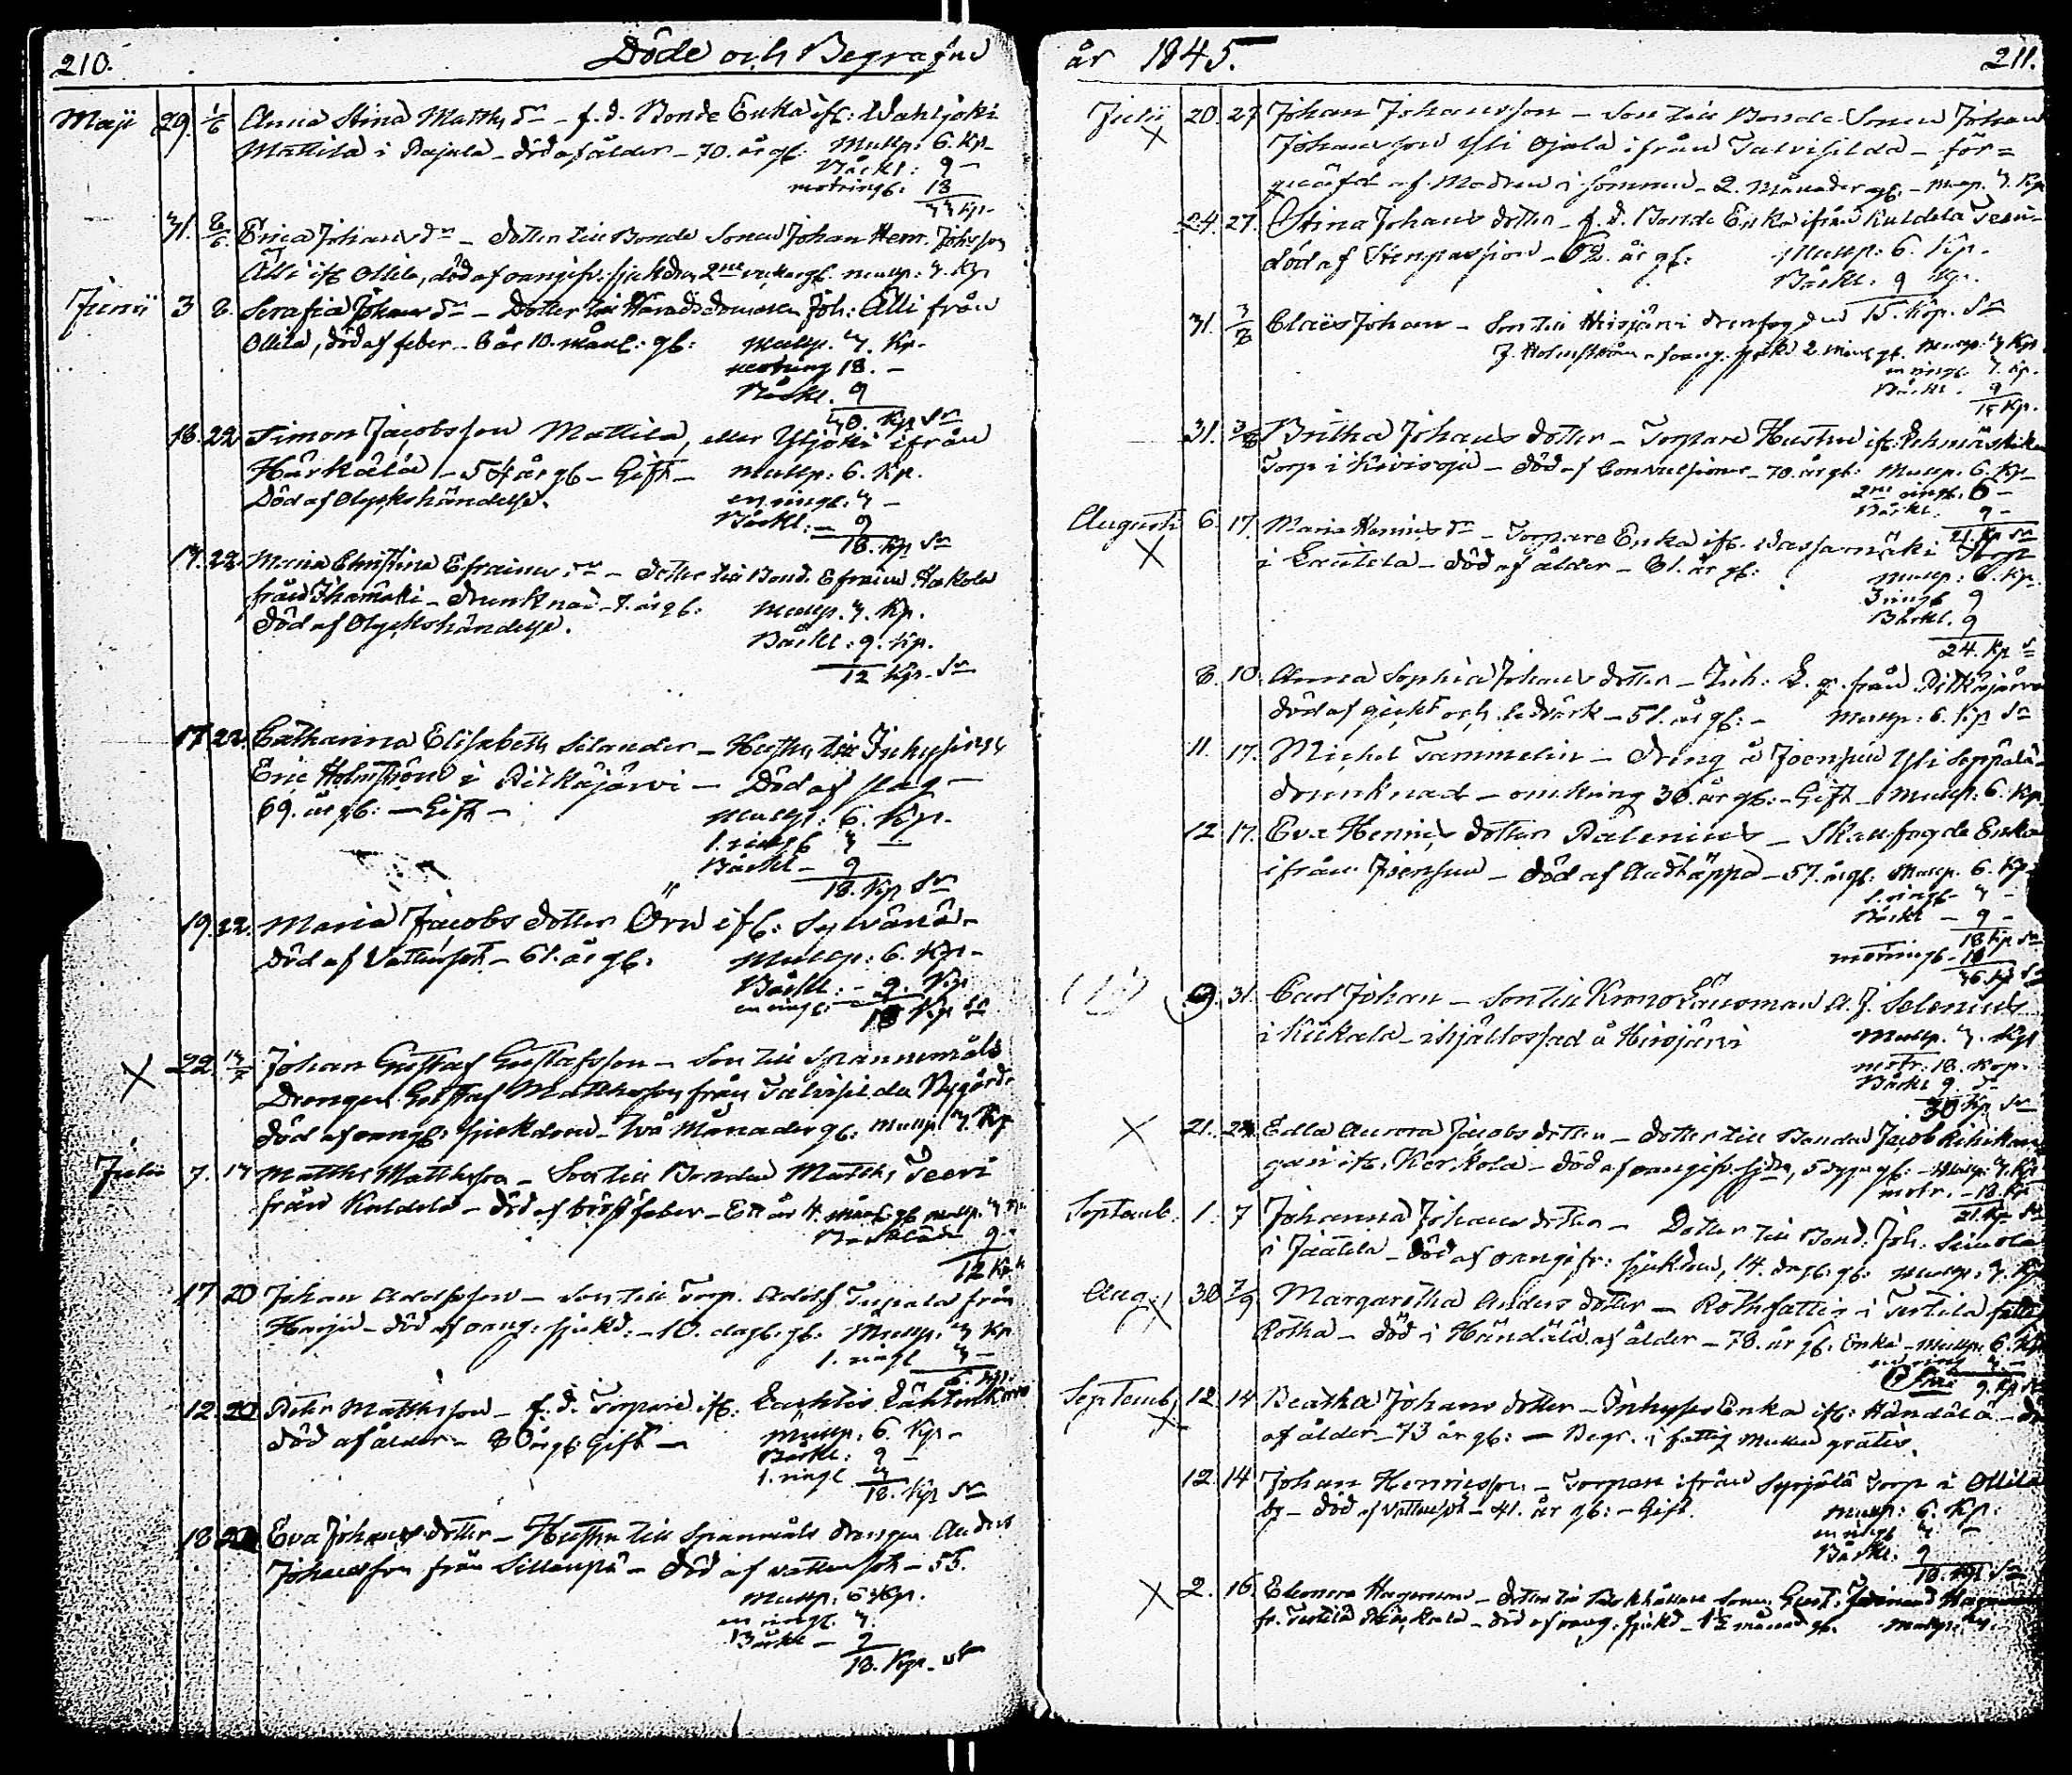 210.
Döde och Begrafne
Maji 29. 1/6 Anna Stina Matths dr – f. d. Bonde Enka ifr: Wahljoki
Mattila i Rajala – död af ålder – 70. år gl: Mullp: 6. Kp
Bårkl: 9 –
motringl: 18
33 Kp.
31. 8/6 Erica Johans dr – Dotter till Bonde Sonen Johan Henr. Johsson
Älli ifr Ollila, död af oangifv: sjukdom, 2ne veckor gl. mullp: 3. Kp
Junii 3 8. Serafia Johans dr – Dotter till Häradsdomaren Joh: Älli från
Ollila, död af feber – 8 år 10. mån: gl: Mullp. 3. Kp.
motring 18. –
Bårkl. 9
30. Kp Sr
16. 22 Simon Jacobsson Mattila, eller Ylijoki ifrån
Härkälä – 54 år gl – Gift – Mullp: 6. Kp.
Död af Olyckshändelse. en ringl: 3 –
Bårkl: – 9
18. Kp Sr
17. 22. Maria Christina Efraims dr – Dotter till Bond. Efraim Hakola
från Ihamäki – Drunknad – 7. år gl: Mullp. 3. Kp.
Död af Olyckshändelse. Bårkl: 9. Kp.
12 Kp. Sr
17 22. Catharina Elisabeth Selander – Hustru till Inhysing
Eric Holmström i Pitkäjärvi – Död af slag –
69. år gl: – Gift – Mullp: 6. Kp.
1. ringl 3 –
Bårkl – 9
18. Kp Sr
19. 22. Maria Jacobs dotter Örn ifr: Sylvänä –
Död af Vattusot – 61. år gl: Mullp: 6. Kp –
Bårkl: – 9. Kp
en ringl: – 3
18 Kp Sr
X 22. 13/7 Johan Gustaf Gustafsson – Son till Spannmåls
Drengen Gustaf Mattsson från Talvisilda Nygård.
död af oangf: sjukdom – två Månader gl: Mullp 3. Kp
Julii 7. 13 Matths Matthsson – Son till Bonden Matths Teeri
från Kuldela – död af bröstfeber – Ett år 4. mån: gl mullp. 3 Kp.
Bårkläde 9.
12 Kp.
17 20 Johan Adolfsson – Son till Torp. Adolf Tupala från
Harju – död af oang. sjukd: – 10. dag. gl: Mullp: 3 Kp
1. ringl 3 –
6. Kp.
12. 20 Petter Matthsson – f. d. Torpare ifr:
död af ålder – 80 år gl: Gift – Mullp: 6. Kp –
Bårkl: 9 –
1. ringl 3
18. Kp Sr
18 20 Eva Johans dotter – Hustru till Spannmåls drengen Anders
Johansson från Sillanpä – död af vattusot – 55.
Mullp: 6 Kp.
en ringl. 3.
Bårkl – 9
18. Kp. Sr
år 1845. 211.
Julii X 20. 27 Johan Johansson – Son till Bonde Sonen Johan
Johansson Yli Ojala ifrån Talvisilda – för=
qväfd af Modren i sömnen – 2. Månader gl. – Mullp. 3. Kp
24. 27. Stina Johans dotter – f. d. Bonde Enka ifrån Kuldela Teeri –
död af Stenpassion – 62. år gl: Mullp: 6. Kp.
Bårkl. 9 Kp.
15. Kop. Sr
31. 3/8 Claes Johan – Son till Hirsjärvi
J. Holmström – oang. sjukd 2. mån gl. Mullp: 3 Kp
en ringl. 3. Kp.
Bårkl. 9
15 Kp.
31. 3/8 Britha Johans dotter – Torpare Hustru ifr:
Torp i Kivisoja – död af Convulsioner – 70. år gl: Mullp: 6. Kp
2ne ringl. 6 –
Bårkl. 9 –
21. Kp Sr
Augusti X 6. 17. Maria Henrics dr – Torpare Enka ifr. Vassarmäki Torp
i Lautela – död af ålder – 81. år gl: Mullp: 6. Kp.
3 ringl 9
Bårkl. 9
24. Kp Sr
8. 10. Anna Sophia Johans dotter – Inh: E. q. från Pitkäjärvi
död af gickt och ledvärk – 51. år gl: – Mullp: 6. Kp Sr
11. 17. Michel Tammelin – Dreng å Joensuu Yli Seppälä
drunknad – omkring 30. år gl: – Gift – Mullp: 6. Kp
12 17. Eva Henrics dotter Palenius – Skallfogde Enka
ifrån Joensuu – död af Andtäppa – 57. år gl: Mullp. 6. Kp
1. ringl – 3 –
Bårkl – 9 –
18 Kp Sr
motringl – 18
36 Kp Sr
9. 31. Carl Johan – Son till Krono Länsman A. J. Selenius
i Kiikala – ihjälbossad å Hirsjärvi Mullp. 3. Kp
motr: 18. Kop.
Bårkl 9. Sr
30 Kp Sr
X 21. 24. Edla Aurora Jacobs dotter – dotter till Bonden Jacob
ifr: Kerkola – död af oangifv. sjdm, 5 dygn gl: – Mullp. 3. Kp
motr. – 18. Kp
21. Kp Sr
Septemb. 1. 7 Johanna Johans dotter – Dotter till Bond: Joh. Simola
i Jäätela – död af oangifv: sjukdom, 14. dag. gl: Mullp: 3. Kp
Aug. X 30 7/9 Margaretha Anders dotter – Rothfattig i Tertila fattig
Rotha – död i Händälä af ålder – 78. år gl: Enka – Mullp: 6. Kp
en ring 3. –
9. Kp Sr
Septemb X 12. 14 Beatha Johans dotter – Inhyses Enka ifr: Händälä – död
af ålder – 73 år gl: – Begr. i fattig mullen gratis.
12. 14 Johan Henricsson – Torpare ifrån Syrjälä Torp i Ollila
by – död af Vattusot – 41. år gl: – Gift. Mullp: 6. Kp:
en ringl 3. –
Bårkl. 9
18. Kp Sr
X 2. 16. Eleonora – Dotter till
fr. Tertilä – död af oang. sjukd – 1½ månad gl. Mullp. 3.